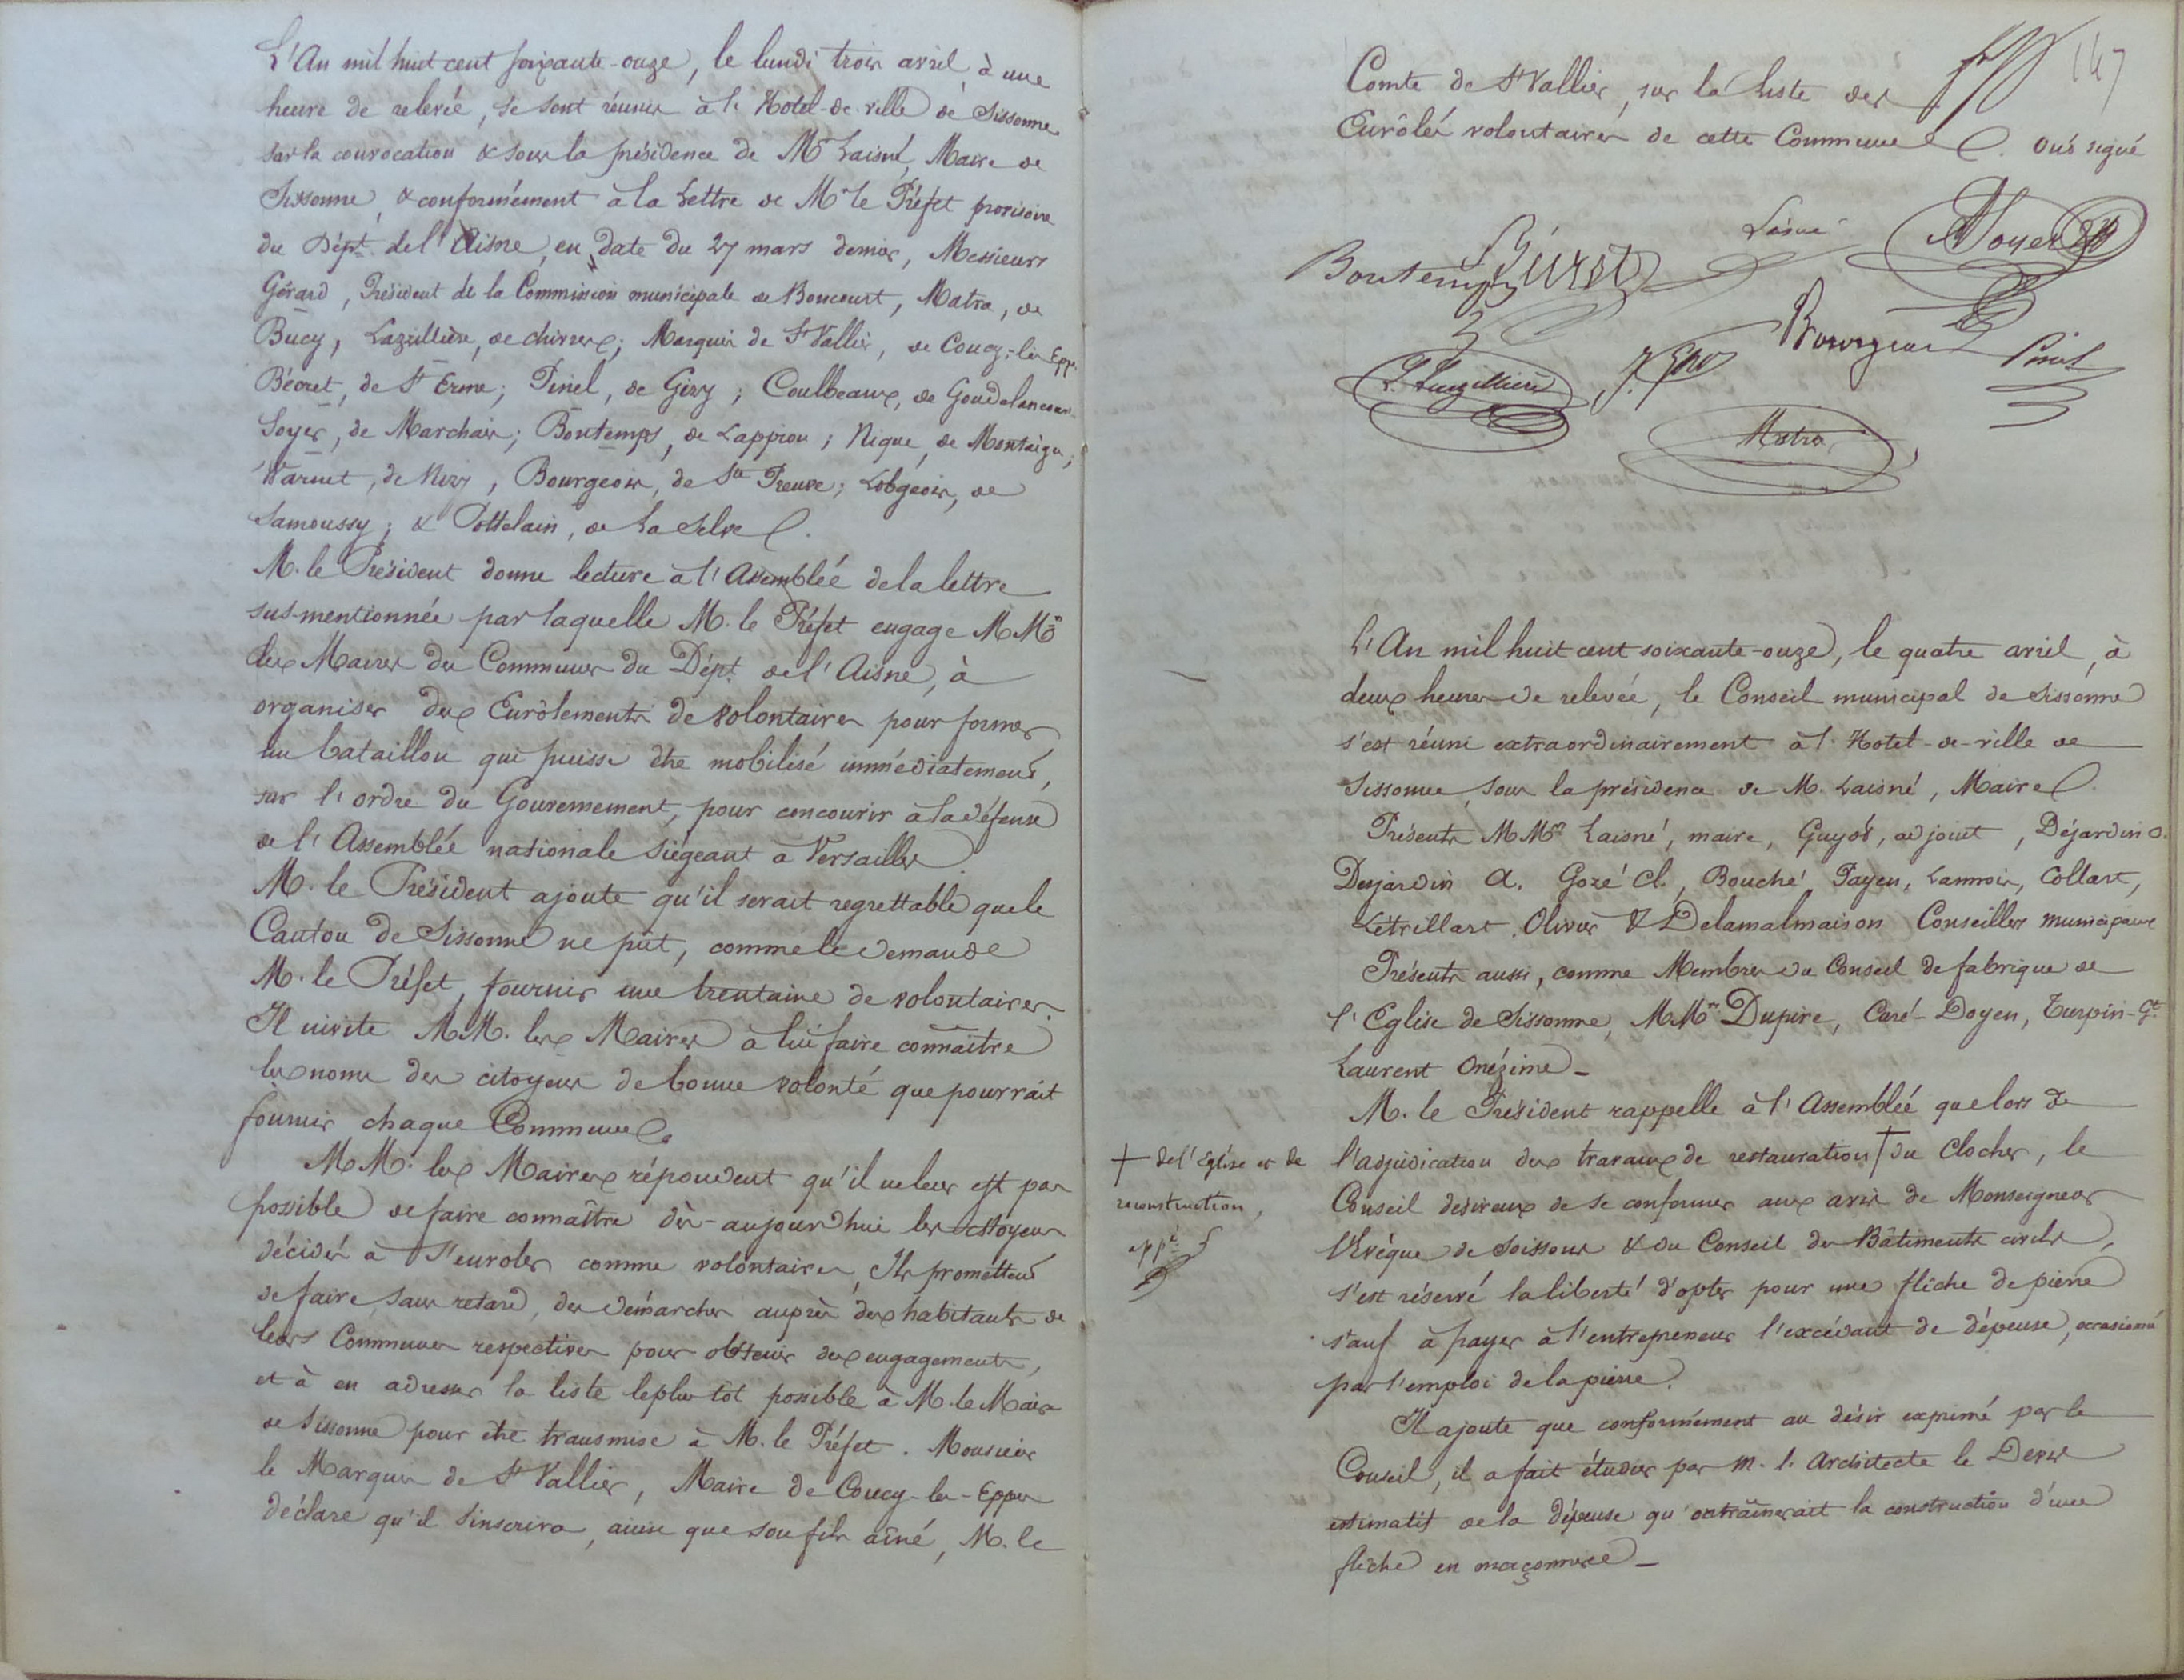 L'An mil huit cent soixante-onze, le lundi trois avril à une
heure de relevée, se sont réunis à l'Hotel-de-ville de Sissonne
sur la convocation & sous la présidence de Mr Laisné, Maire de
Sissonne, & conformément à la Lettre de Mr le Préfet provisoire
du Dépt. de l'Aisne, en date du 27 mars dernier, Messieurs
Gérard, Président de la Commission municipale de Boncourt, Matra, de
Bucy, Lazillière, de chivres; Marquis de St Vallier, de Coucy-les Eppes
Bécret, de St Erme; Pinel, de Gizy; Coulbeaux, de Goudelancour
Soyer, de Marchais; Bontemps, de Lappion; Nique, de Montaigu;
Warnet, de Nizy, Bourgeois, de Ste Preuve; Lobgeois, de
Samoussy; & Pottelain, de La Selve.
M. le Président donne lecture à l'Assemblée de la lettre
sus-mentionnée par laquelle M. le Préfet engage M Mrs
les Maires des Communes du Dépt. de l'Aisne, à
organiser des Enrôlements de volontaires pour former
un bataillon qui puisse être mobilisé immédiatement,
sur l'ordre du Gouvernement, pour concourir à la défense
de l'Assemblée nationale siégeant à Versailles.
M. le Président ajoute qu'il serait regrettable que le
Canton de Sissonne ne pût, comme le demande
M. le Préfet, fournir une trentaine de volontaires.
Il invite M.M. les Maires à lui faire connaître
les noms des citoyens de bonne volonté que pourrait
fournir chaque Commune.
M M. les Maires répondent qu'il ne leur est pas
possible de faire connaître dès-aujourd'hui les citoyens
décidés à s'enroler comme volontaires, Ils promettent
de faire, sans retard, des démarches auprès des habitants de
leurs Communes respectives pour obtenir des engagements,
et à en adresser la liste le plus tôt possible à M. le Maire
de Sissonne pour être transmise à M. le Préfet. Monsieur
le Marquis de St Vallier, Maire de Coucy-les-Eppes
déclare qu'il s'inscrira, ainsi que son fils aîné, M. le
147
Comte de St Vallier, sur la liste des
Enrôlés volontaires de cette Commune. Ont signé
Laisné
Bontemps
Bourgeois
Pinel
Matra
L'An mil huit cent soixante-onze, le quatre avril, à
deux heures de relevée, le Conseil municipal de Sissonne
s'est réuni extraordinairement à l'Hotel-de-ville de
Sissonne, sous la présidence de M. Laisné, Maire.
Présents M Mrs Laisné, maire, Guyot, adjoint, Déjardin O.
Desjardin A. Gozé Cl., Bouché Payen, Lannois, Collart,
Létrillart, Olivier & Delamalmaison Conseillers municipaux
Présents aussi, comme Membres du Conseil de fabrique de
l'Eglise de Sissonne, M Mrs Dupire, Curé-Doyen, Turpin-Gt
Laurent Onézime –
M. le Président rappelle à l'Assemblée que lors de
l'adjudication des travaux de restauration † du Clocher, le
† de l'Eglise et de
reconstruction,
Conseil désireux de se conformer aux avis de Monseigneur
l'Evêque de Soissons & du Conseil des Bâtiments civils,
s'est réservé la liberté d'opter pour une flêche de pierre
sauf à payer à l'entrepreneur l'excédant de dépense, occasionné
par l'emploi de la pierre.
Il ajoute que conformément au désir exprimé par le
Conseil, il a fait étudier par M. l'Architecte le Devis
estimatif de la dépense qu'entraînerait la construction d'une
flêche en maçonnerie –